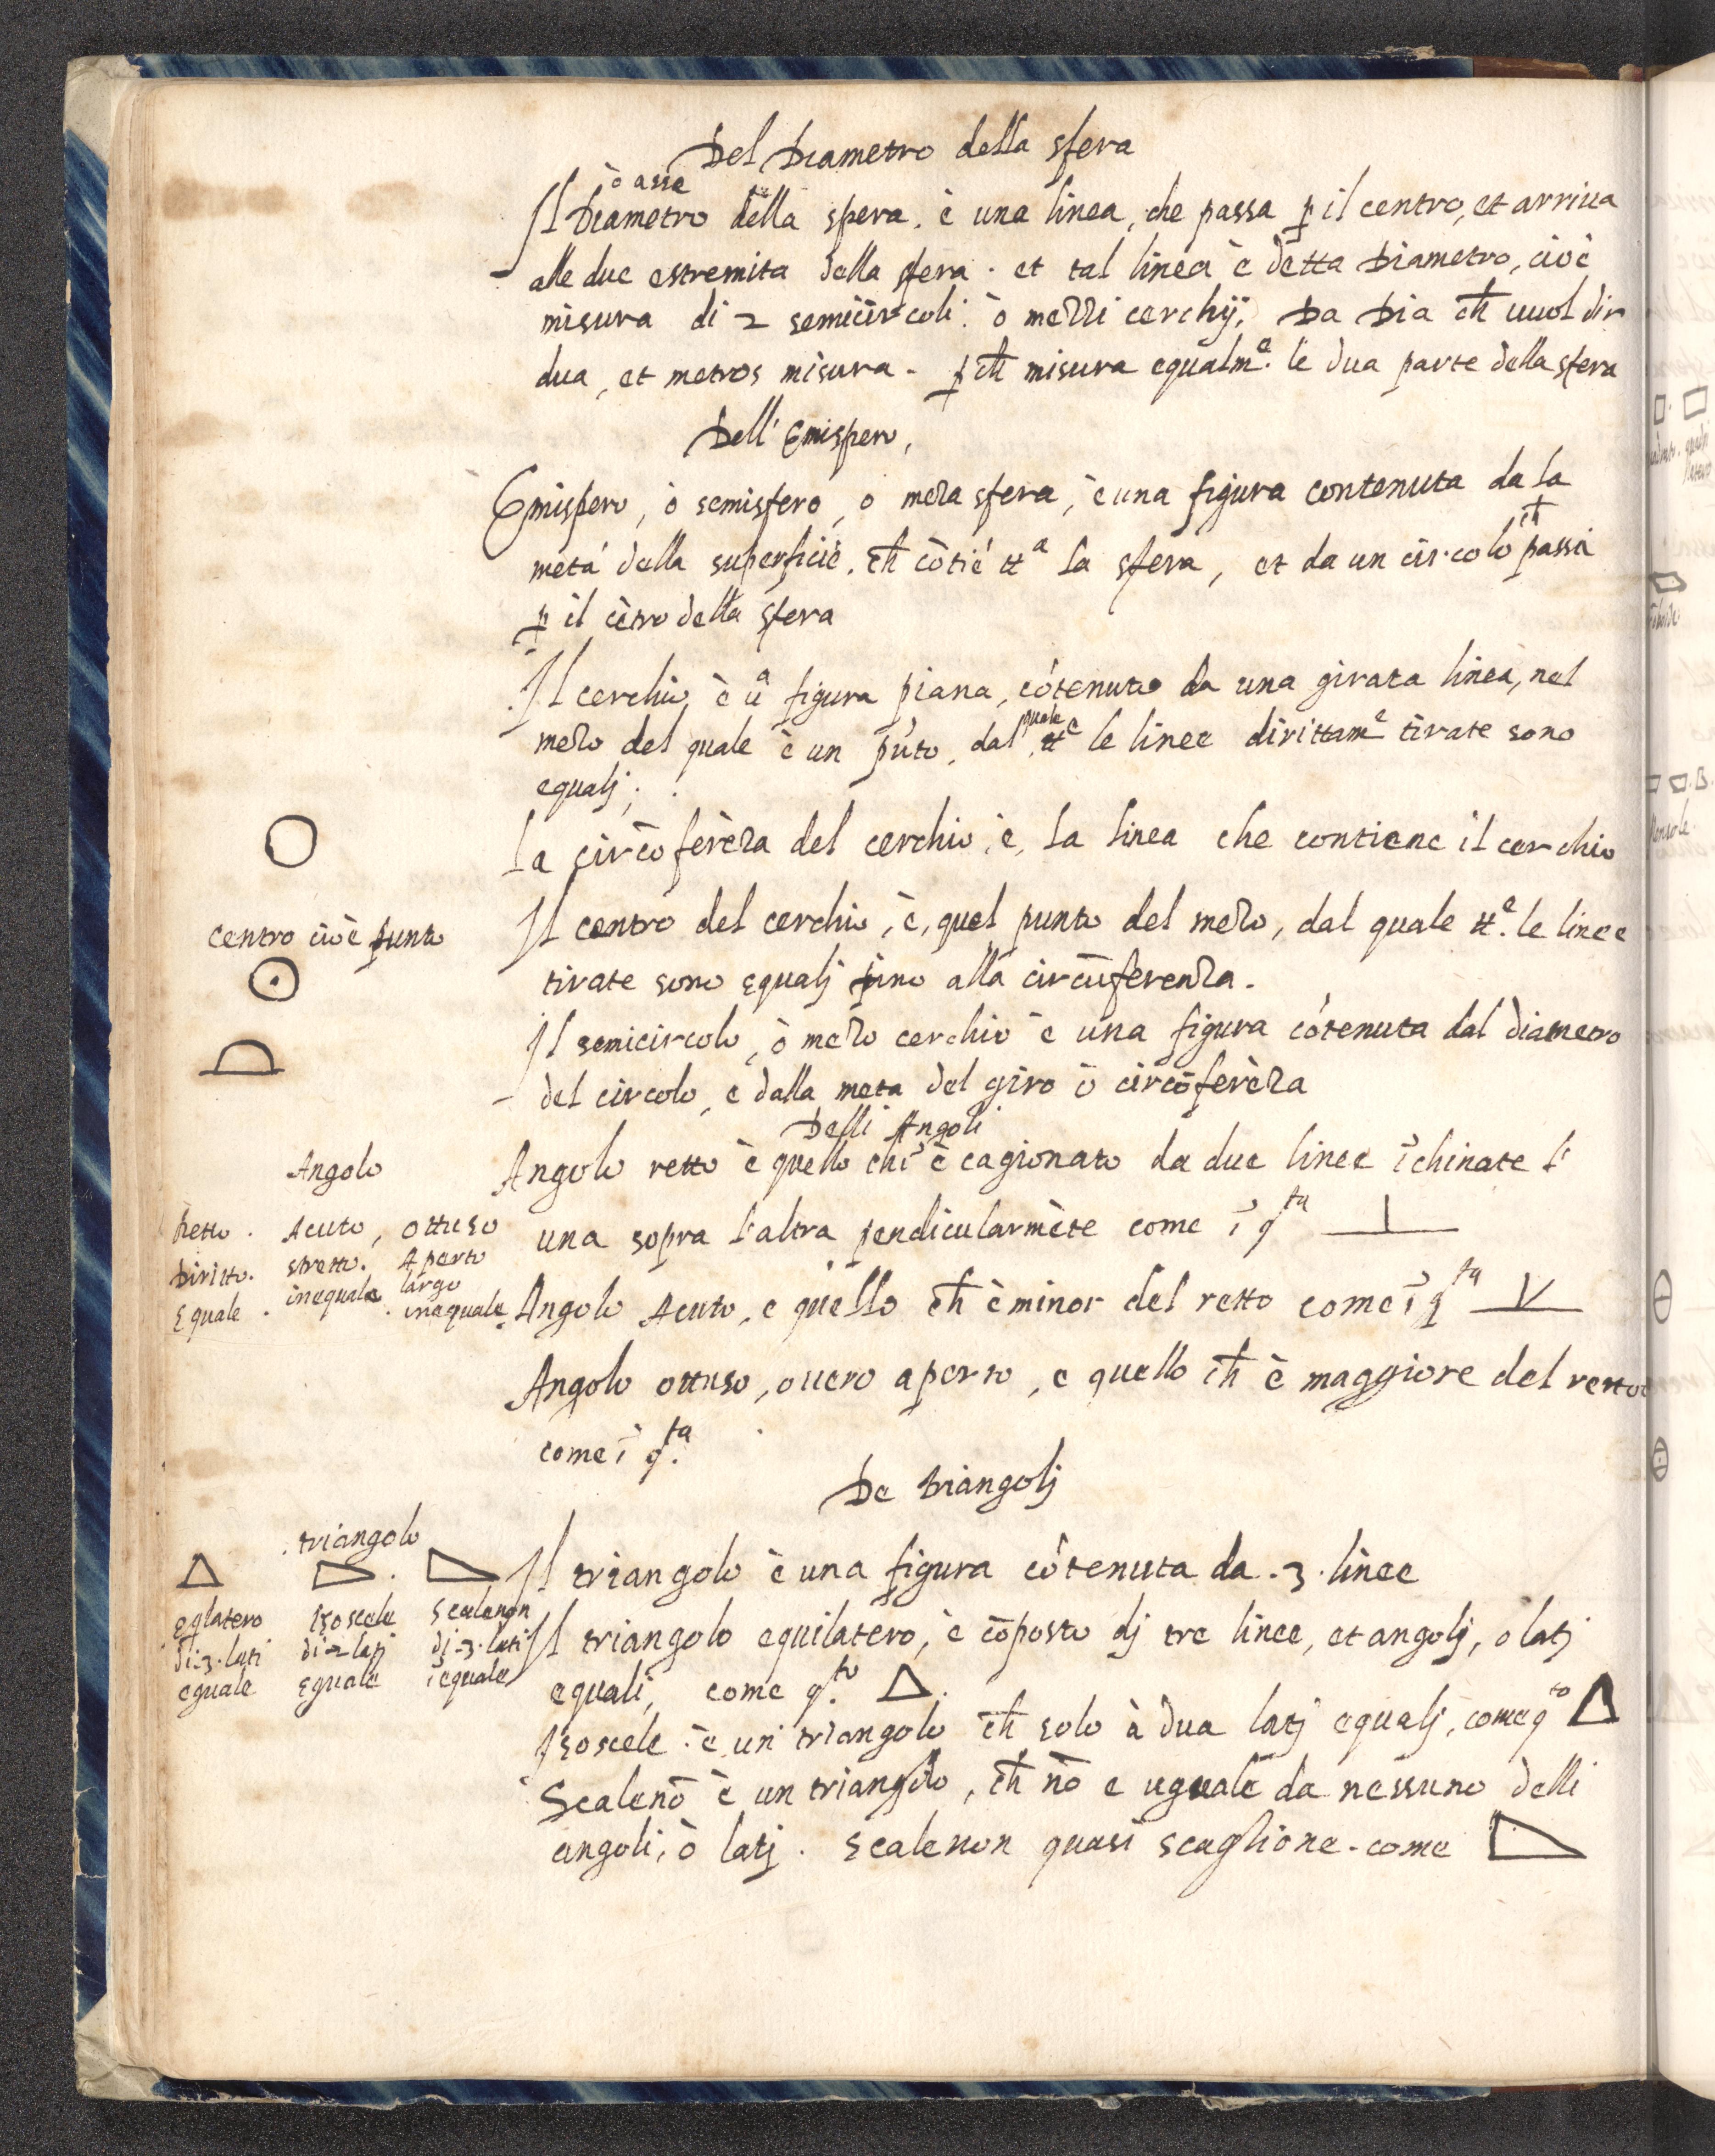 Del Diametro della sfera
ò asse
Il Diametro della spera. è una linea, che passa p il centro, et arriua
alle due estremita della sfera. et tal linea è detta Diametro, cioè
misura di 2 semicircoli. ò mezzi cerchij, Da Dia ch̄ uuol dir
dua, et metros misura. p ch̄ misura equalmᵉ. le dua parte della sfera
Dell' Emispero,
Emispero, ò semisfero, o meza sfera, è una figura contenuta da la
metà della superficie. ch̄ cōtiē ttᵃ la sfera, et da un circolo ch̄ passa
p il cētro della sfera
Il cerchio, è uᵃ figura piana, cōtenuta da una girata linea, nel
mezo del quale è un pūto, dal quale ttᵉ le linee dirittamᵉ tirate sono
equalj;
La circōferēza del cerchio, è, la linea che contiene il cerchio
centro cioè punto
Il centro del cerchio, è, quel punto del mezo, dal quale ttᵉ. le linee
tirate sono equalj fino alla circūferenza.
Il semicircolo, ò mezo cerchio è una figura cōtenuta dal diametro
del circolo, e dalla meta del giro ò circōferēza
Delli Angoli
Angolo
Angolo retto è quello ch̄ è cagionato da due linee īchinate l'
una sopra l'altra pendicularmēte come ī qᵗᵃ
Retto. Acuto, ottuso
Diritto. stretto. Aperto
largo
Equale. inequale. inequale
Angolo Acuto, e quello ch̄ è minor del retto come ī qᵗᵃ
Angolo ottuso, ouero aperto, e quello ch̄ è maggiore del retto
come ī qᵗᵃ.
De triangolj
triangolo
Il triangolo è una figura cōtenuta da .3. linee
eqlatero Isoscele Scalenon
di .3. lati di 2 latj di .3. lati
eguale Eguale īequale
Il triangolo equilatero, è cōposto dj tre linee, et angolj, o latj
equali, come q.ᵗᵒ
Isoscele è un triangolo ch̄ solo à dua latj equalj, come qᵗᵒ
Scalenō è un triangolo, ch̄ nō e uguale da nessuno delli
angoli, ò latj. Scalenon quasi scaglione. come